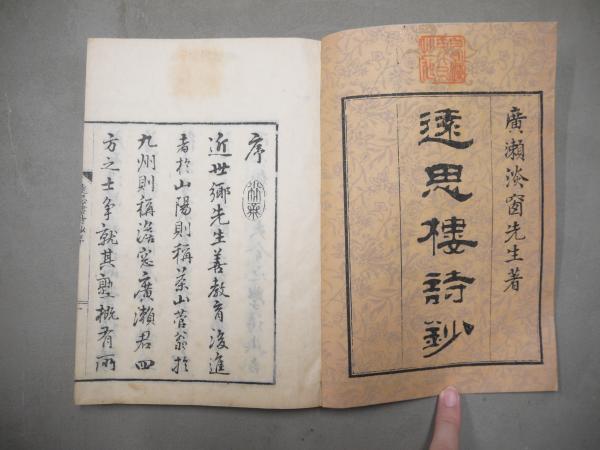 廣瀬淡窗先生著
遠思樓詩鈔
序
近世鄉先生善教育後進
者於山陽則稱茶山菅翁於
九州則稱淡窓廣瀬君四
方之士爭就其塾概有所